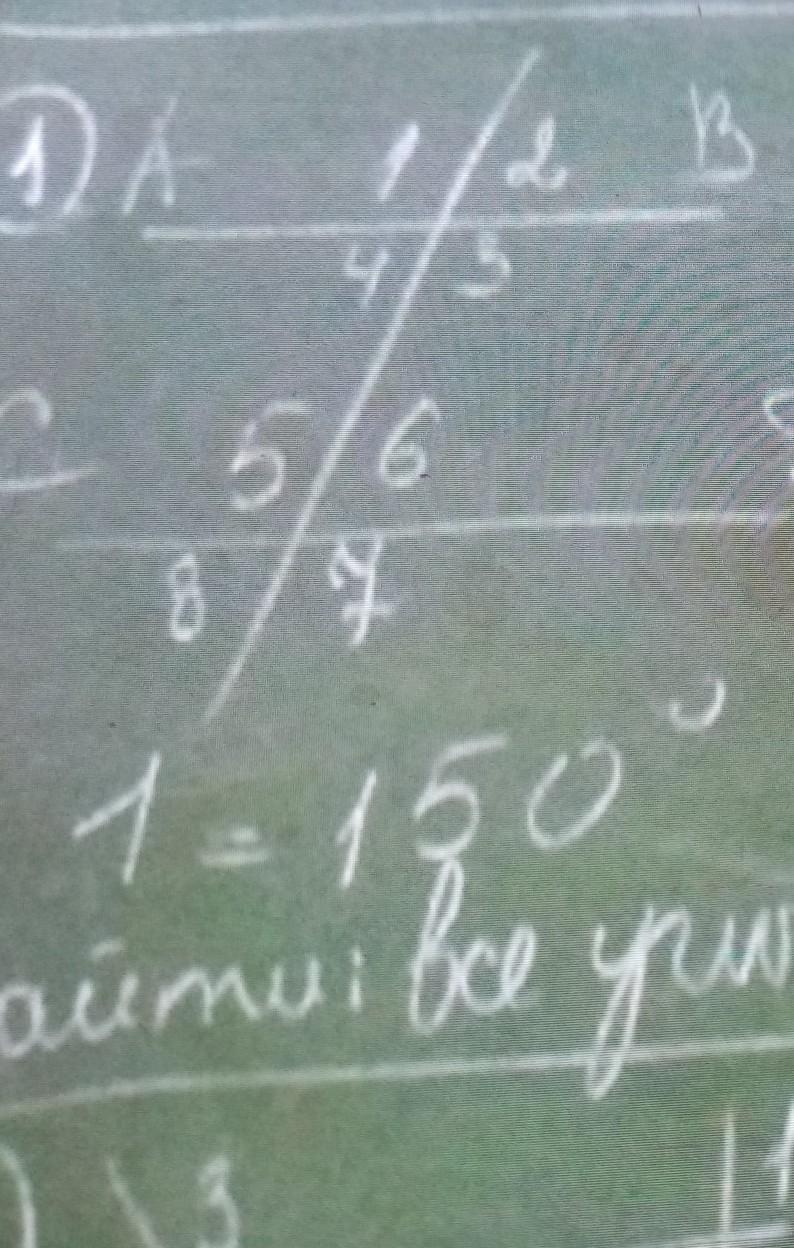 1 A 1 2 B
4 3
C 5 6
8 7
1 = 150°
айти: все угл
3 1